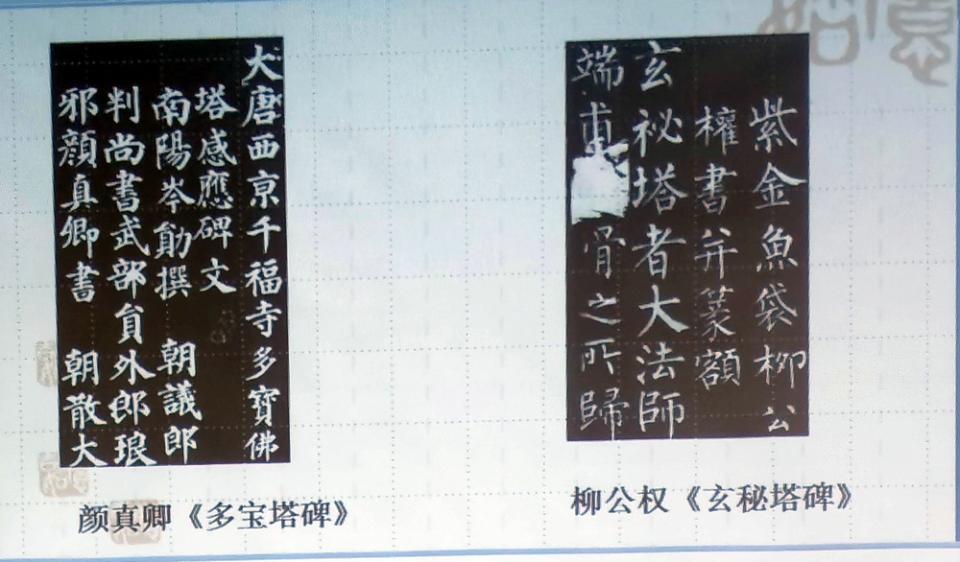 大唐西京千福寺多寶佛
塔感應碑文
南陽岑勛撰 朝議郎
判尚書武部員外郎琅
邪顏真卿書 朝散大
颜真卿《多宝塔碑》
紫金魚袋柳公
權書并篆額
玄祕塔者大法師
端甫骨之所歸
柳公权《玄秘塔碑》